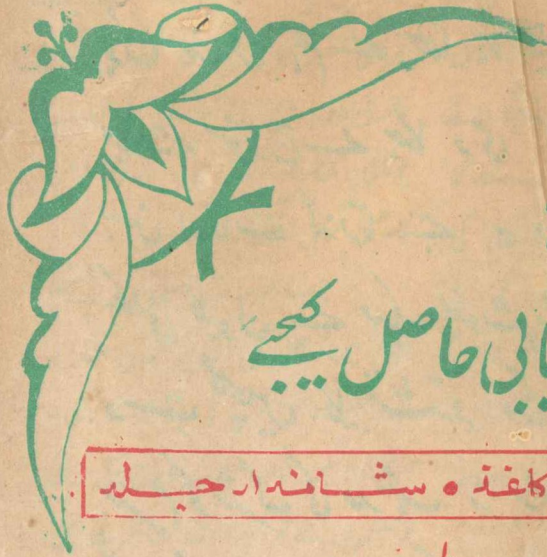 حاصل کیجیے
کاغذ • شاندار جلد